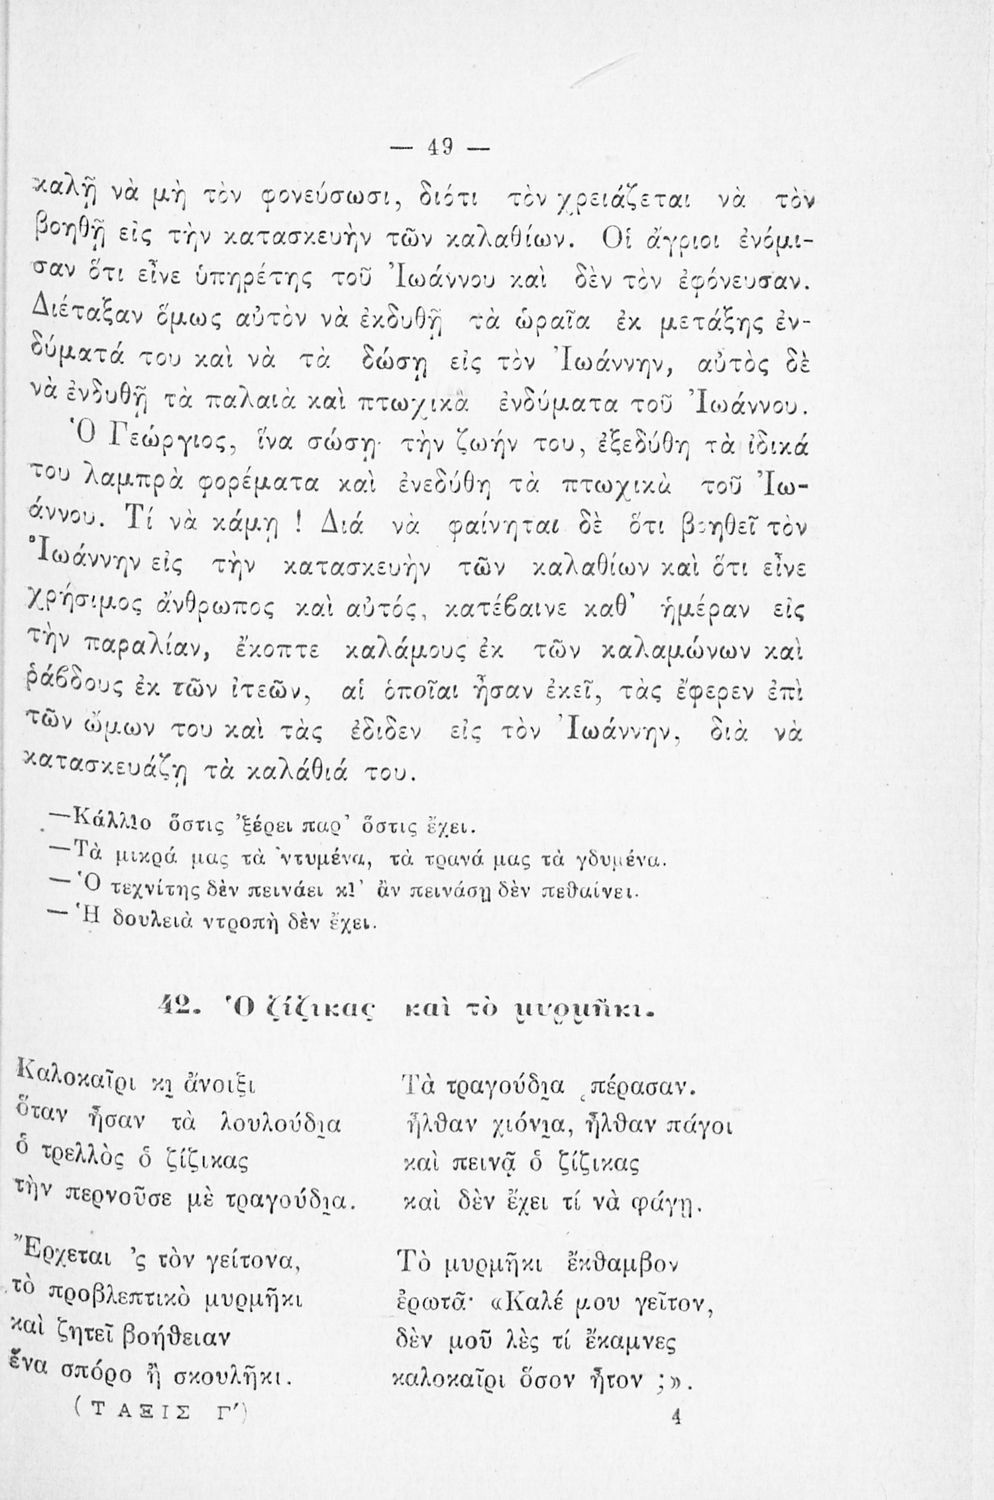 — 49 —
καλῇ νὰ μὴ τὸν φονεύσωσι, διότι τὸν χρειάζεται νὰ τὸν
βοηθῇ εἰς τὴν κατασκευὴν τῶν καλαθίων. Οἱ ἄγριοι ἐνόμι-
σαν ὅτι εἶνε ὑπηρέτης τοῦ Ἰωάννου καὶ δὲν τὸν ἐφόνευσαν.
Διέταξαν ὅμως αὐτὸν νὰ ἐκδυθῇ τὰ ὡραῖα ἐκ μετάξης ἐν-
δύματά του καὶ νὰ τὰ δώσῃ εἰς τὸν Ἰωάννην, αὐτὸς δὲ
νὰ ἐνδυθῇ τὰ παλαιὰ καὶ πτωχικὰ ἐνδύματα τοῦ Ἰωάννου.
Ὁ Γεώργιος, ἵνα σώσῃ τὴν ζωήν του, ἐξεδύθη τὰ ἰδικά
του λαμπρὰ φορέματα καὶ ἐνεδύθη τὰ πτωχικὰ τοῦ Ἰω-
άννου. Τί νὰ κάμῃ ! Διά νὰ φαίνηται δὲ ὅτι βοηθεῖ τὸν
Ἰωάννην εἰς τὴν κατασκευὴν τῶν καλαθίων καὶ ὅτι εἶνε
χρήσιμος ἄνθρωπος καὶ αὐτός, κατέβαινε καθ' ἡμέραν εἰς
τὴν παραλίαν, ἔκοπτε καλάμους ἐκ τῶν καλαμώνων καὶ
ῥάβδους ἐκ τῶν ἰτεῶν, αἱ ὁποῖαι ἦσαν ἐκεῖ, τὰς ἔφερεν ἐπὶ
τῶν ὤμων του καὶ τὰς ἐδιδεν εἰς τὸν Ἰωάννην, διὰ νὰ
κατασκευάζῃ τὰ καλάθιά του.
—Κάλλιο ὅστις 'ξέρει παρ' ὅστις ἔχει.
—Τὰ μικρά μας τὰ 'ντυμένα, τὰ τρανά μας τὰ γδυμένα.
— Ὁ τεχνίτης δὲν πεινάει κι' ἂν πεινάσῃ δὲν πεθαίνει.
— Ἡ δουλειὰ ντροπὴ δὲν ἔχει.
42. Ὁ ζίζικας καὶ τὸ μυρμῆκι.
Καλοκαῖρι κι̯ ἄνοιξι
ὅταν ἦσαν τὰ λουλούδι̯α
ὁ τρελλὸς ὁ ζίζικας
τὴν περνοῦσε μὲ τραγούδι̯α.
Ἔρχεται 'ς τὸν γείτονα,
τὸ προβλεπτικὸ μυρμῆκι
καὶ ζητεῖ βοήθειαν
ἕνα σπόρο ἢ σκουλῆκι.
Τὰ τραγούδι̯α πέρασαν.
ἦλθαν χιόνι̯α, ἦλθαν πάγοι
καὶ πεινᾷ ὁ ζίζικας
καὶ δὲν ἔχει τί νὰ φάγῃ.
Τὸ μυρμῆκι ἔκθαμβον
ἐρωτᾷ· «Καλέ μου γεῖτον,
δὲν μοῦ λὲς τί ἔκαμνες
καλοκαῖρι ὅσον ἦτον ;».
(ΤΑΞΙΣ Γ΄)
4